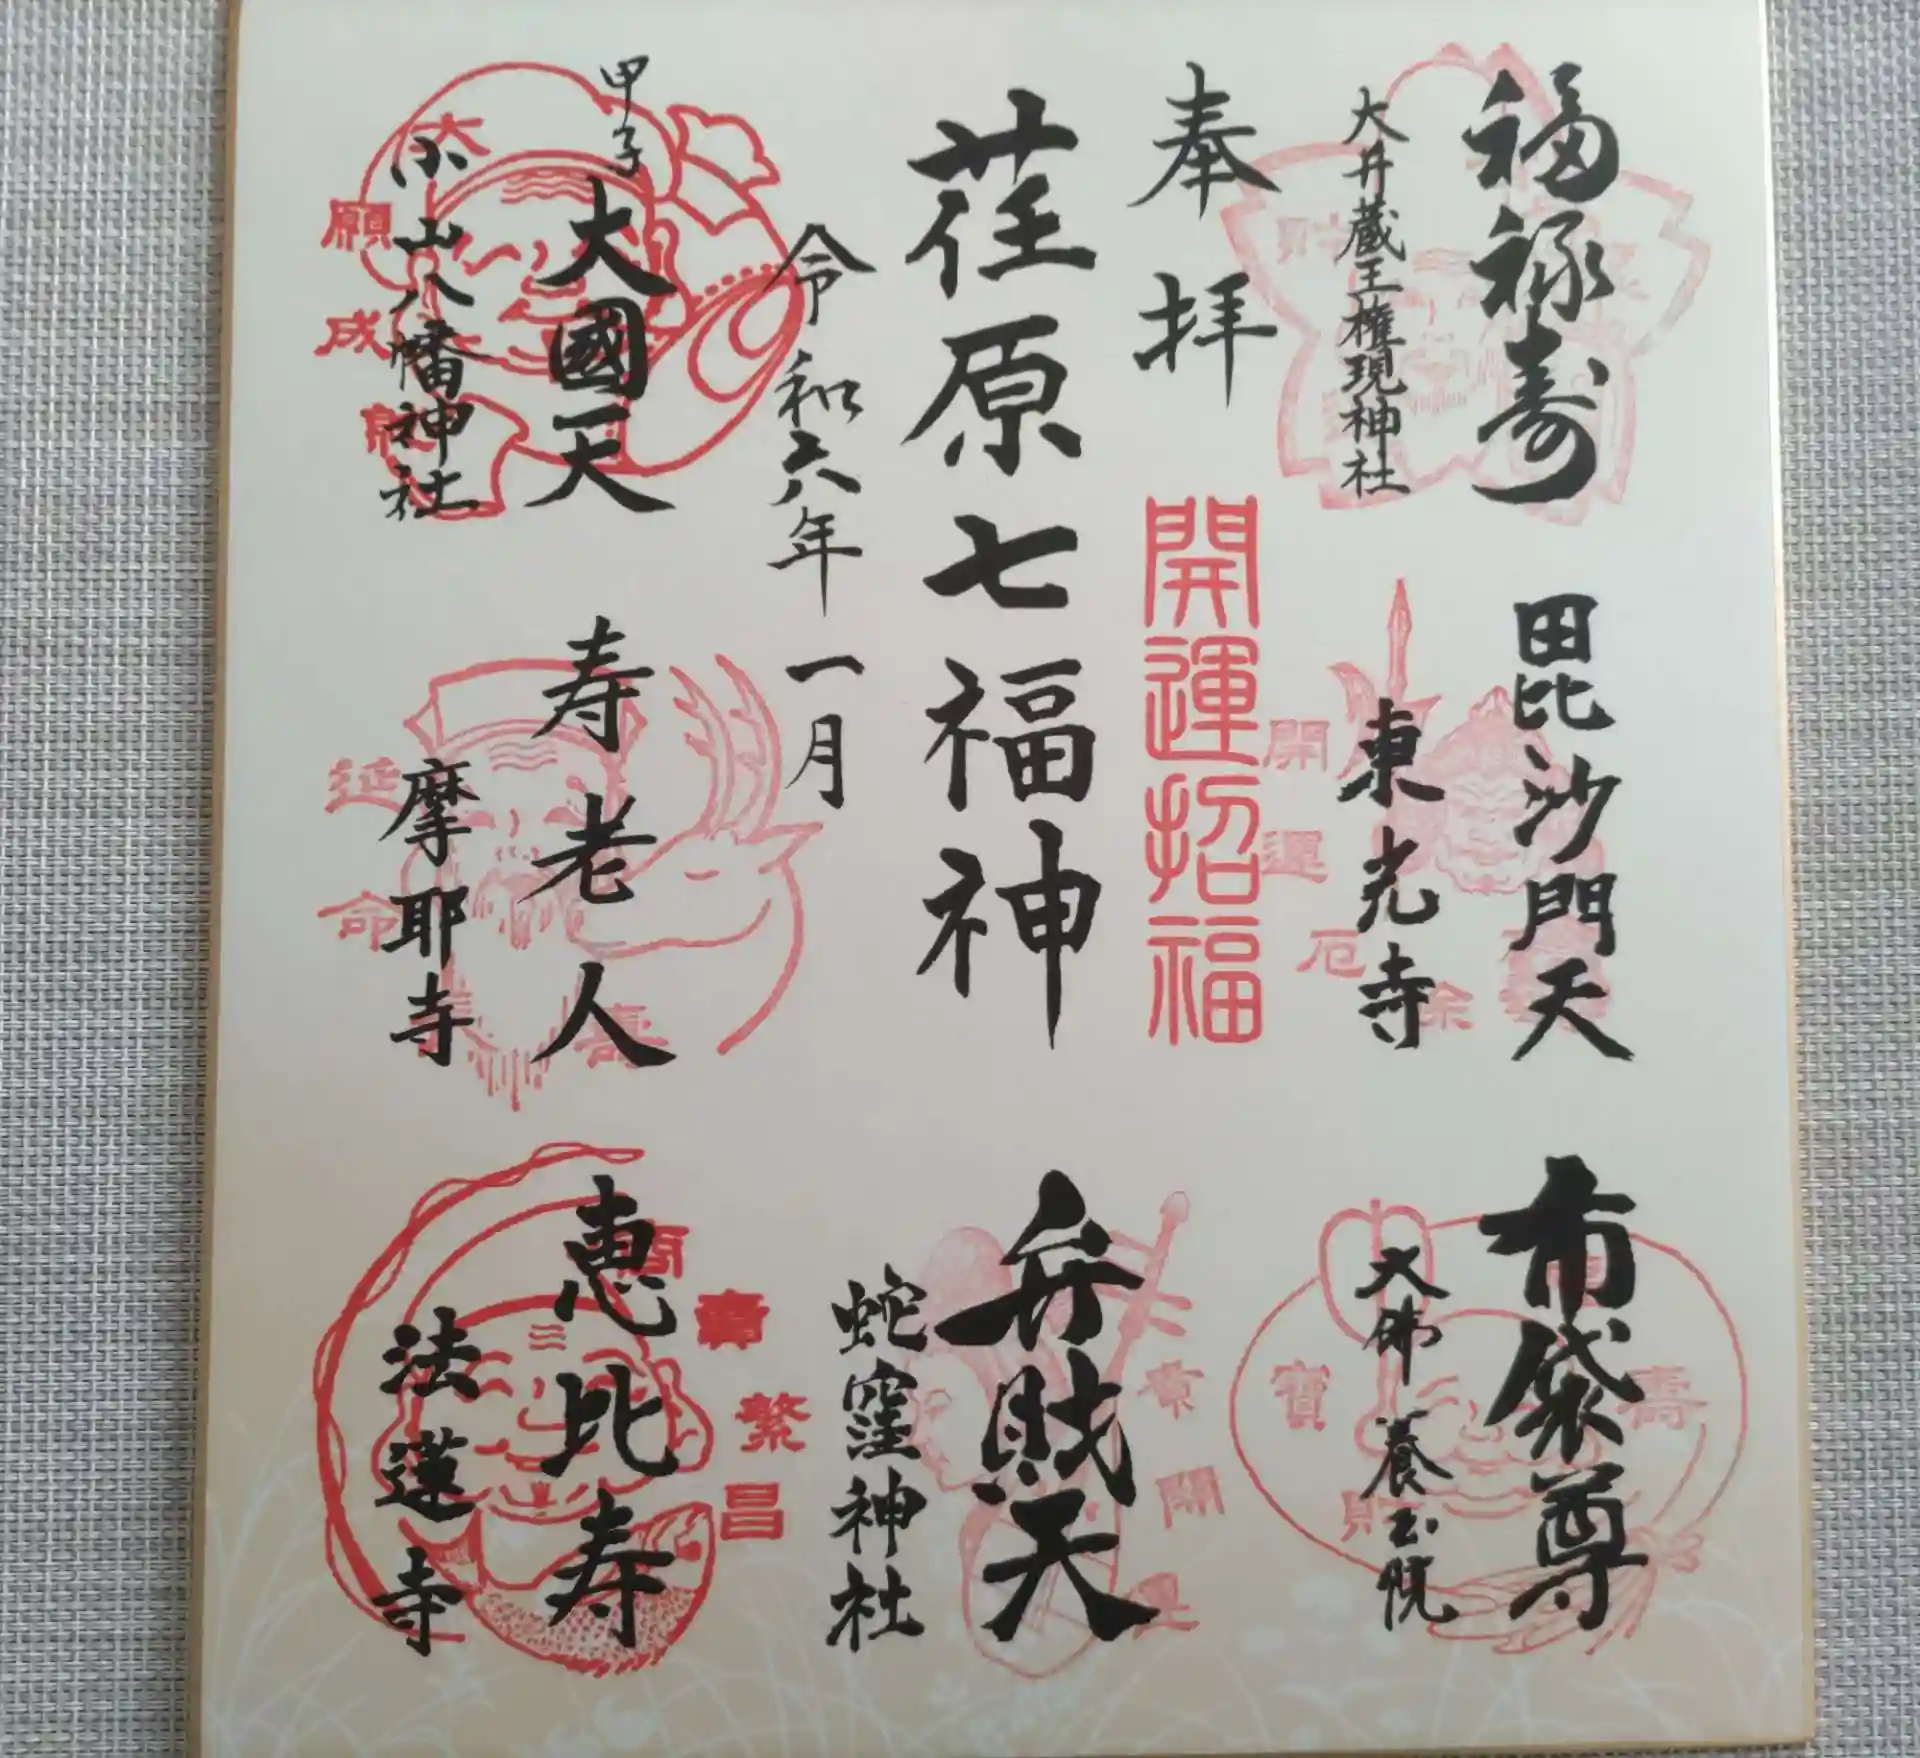 福禄寿
大井蔵王権現神社
毘沙門天
東光寺
布袋尊
大佛 養玉院
奉拝
開運招福
荏原七福神
令和六年一月
弁財天
蛇窪神社
甲子 大國天
小山八幡神社
寿老人
摩耶寺
恵比寿
法蓮寺
大願成就
延命
開運厄除
寶
壽
財
繁昌